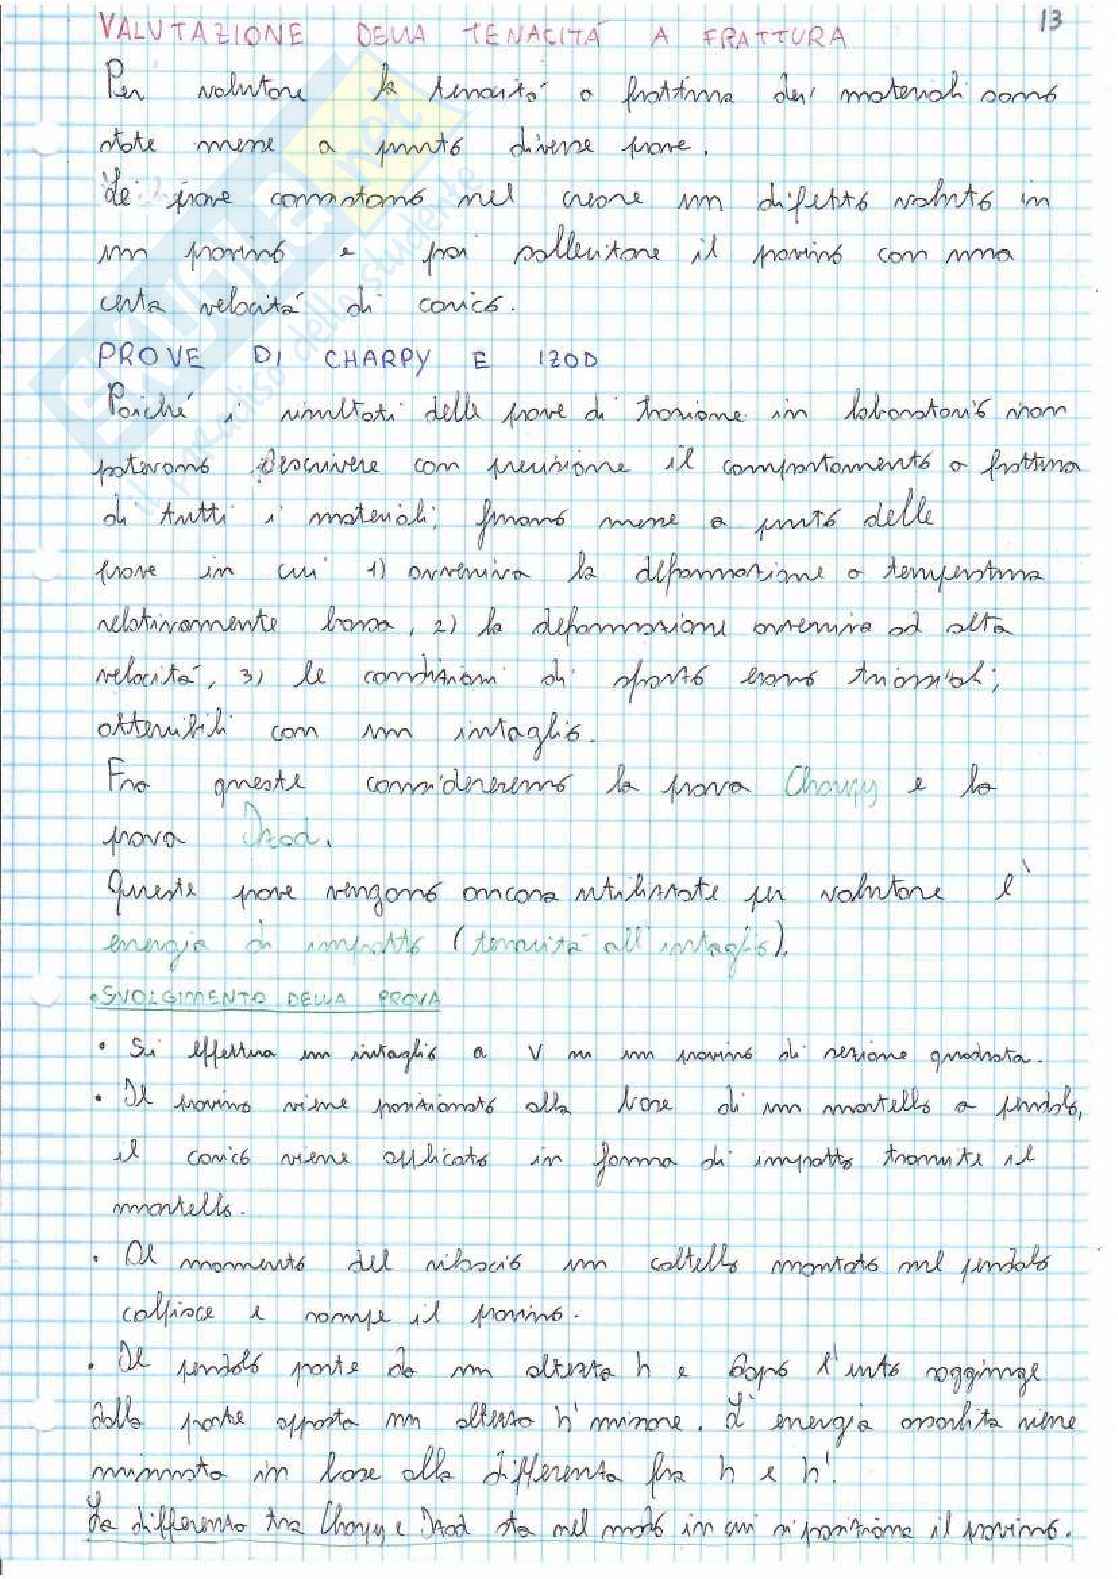 13
VALUTAZIONE DELLA TENACITÁ A FRATTURA
Per valutare la tenacitá a frattura dei materiali sono
state messe a punto diverse prove.
Le prove consistono nel creare un difetto voluto in
un provino e poi sollecitare il provino con una
certa velocitá di carico.
PROVE DI CHARPY E IZOD
Poiché i risultati delle prove di trazione in laboratorio non
potevano descrivere con precisione il comportamento a frattura
di tutti i materiali; furono messe a punto delle
prove in cui 1) avveniva la deformazione a temperatura
relativamente bassa, 2) la deformazione avveniva ad alta
velocitá, 3) le condizioni di sforzo erano triassiali,
ottenibili con un intaglio.
Fra queste considereremo la prova Charpy e la
prova Izod.
Queste prove vengono ancora utilizzate per valutare l'
energia di impatto (tenacitá all'intaglio).
• SVOLGIMENTO DELLA PROVA
• Si effettua un intaglio a V su un provino di sezione quadrata.
• Il provino viene posizionato alla base di un martello a pendolo,
il carico viene applicato in forma di impatto tramite il
martello.
• Al momento del rilascio un coltello montato sul pendolo
colpisce e rompe il provino.
• Il pendolo parte da un altezza h e dopo l'urto raggiunge
dalla parte opposta un altezza h' minore. L'energia assorbita viene
misurata in base alla differenza fra h e h'.
La differenza tra Charpy e Izod sta nel modo in cui si posiziona il provino.
SKUOLA.net
il paradiso dello studente